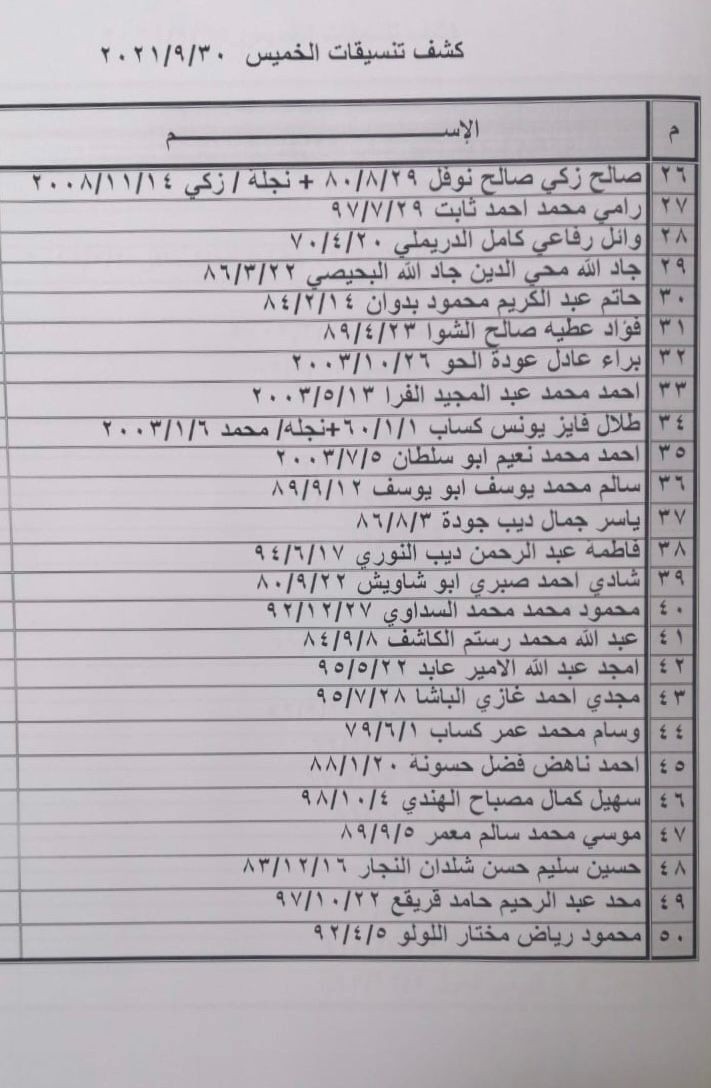 كشف تنسيقات الخميس ٢٠٢١/٩/٣٠
م الإســـــــــــــــــــــم
٢٦ صالح زكي صالح نوفل ٨٠/٨/٢٩ + نجلة / زكي ٢٠٠٨/١١/١٤
٢٧ رامي محمد احمد ثابت ٩٧/٧/٢٩
٢٨ وائل رفاعي كامل الدريملي ٧٠/٤/٢٠
٢٩ جاد الله محي الدين جاد الله البحيصي ٨٦/٣/٢٢
٣٠ حاتم عبد الكريم محمود بدوان ٨٤/٢/١٤
٣١ فؤاد عطيه صالح الشوا ٨٩/٤/٢٣
٣٢ براء عادل عودة الحو ٢٠٠٣/١٠/٢٦
٣٣ احمد محمد عبد المجيد الفرا ٢٠٠٣/٥/١٣
٣٤ طلال فايز يونس كساب ٦٠/١/١+نجله/ محمد ٢٠٠٣/١/٦
٣٥ احمد محمد نعيم ابو سلطان ٢٠٠٣/٧/٥
٣٦ سالم محمد يوسف ابو يوسف ٨٩/٩/١٢
٣٧ ياسر جمال ديب جودة ٨٦/٨/٣
٣٨ فاطمة عبد الرحمن ديب النوري ٩٤/٦/١٧
٣٩ شادي احمد صبري ابو شاويش ٨٠/٩/٢٢
٤٠ محمود محمد محمد السداوي ٩٢/١٢/٢٧
٤١ عبد الله محمد رستم الكاشف ٨٤/٩/٨
٤٢ امجد عبد الله الامير عابد ٩٥/٥/٢٢
٤٣ مجدي احمد غازي الباشا ٩٥/٧/٢٨
٤٤ وسام محمد عمر كساب ٧٩/٦/١
٤٥ احمد ناهض فضل حسونة ٨٨/١/٢٠
٤٦ سهيل كمال مصباح الهندي ٩٨/١٠/٤
٤٧ موسي محمد سالم معمر ٨٩/٩/٥
٤٨ حسين سليم حسن شلدان النجار ٨٣/١٢/١٦
٤٩ محد عبد الرحيم حامد قريقع ٩٧/١٠/٢٢
٥٠ محمود رياض مختار اللولو ٩٢/٤/٥